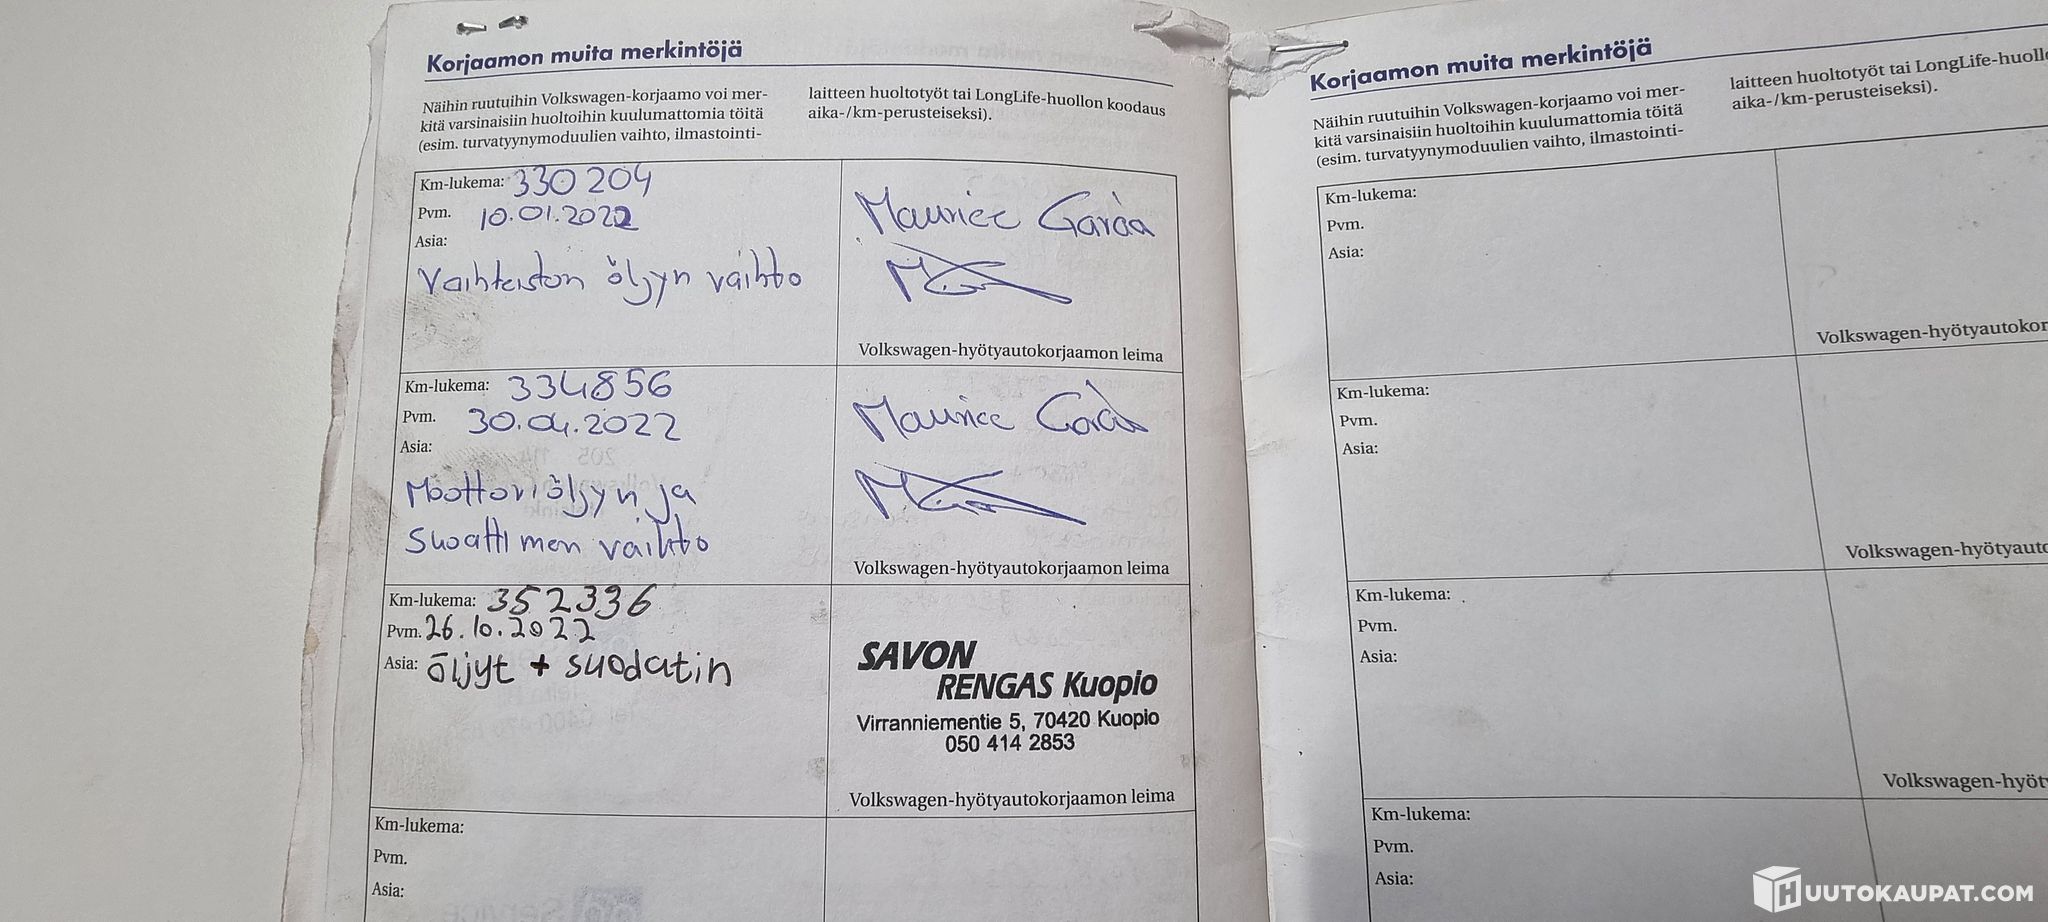 Korjaamon muita merkintöjä
Näihin ruutuihin Volkswagen-korjaamo voi mer-
kitä varsinaisiin huoltoihin kuulumattomia töitä
(esim. turvatyynymoduulien vaihto, ilmastointi-
laitteen huoltotyöt tai LongLife-huollon koodaus
aika-/km-perusteiseksi).
Km-lukema: 330 204
Pvm. 10.01.2022
Asia:
Vaihteiston öljyn vaihto
Maurice
Volkswagen-hyötyautokorjaamon leima
Km-lukema: 334856
Pvm. 30.04.2022
Asia:
Moottoriöljyn ja
suoattimen vaihto
Maurice
Volkswagen-hyötyautokorjaamon leima
Km-lukema: 352336
Pvm. 26.10.2022
Asia: öljyt + suodatin
SAVON
RENGAS Kuopio
Virranniementie 5, 70420 Kuopio
050 414 2853
Volkswagen-hyötyautokorjaamon leima
Km-lukema:
Pvm.
Asia:
Korjaamon muita merkintöjä
Näihin ruutuihin Volkswagen-korjaamo voi mer-
kitä varsinaisiin huoltoihin kuulumattomia töitä
(esim. turvatyynymoduulien vaihto, ilmastointi-
laitteen huoltotyöt tai LongLife-huoll
aika-/km-perusteiseksi).
Km-lukema:
Pvm.
Asia:
Volkswagen-hyötyautokor
Km-lukema:
Pvm.
Asia:
Volkswagen-hyötyauto
Km-lukema:
Pvm.
Asia:
Volkswagen-hyöty
Km-lukema:
Pvm.
Asia:
HUUTOKAUPAT.COM